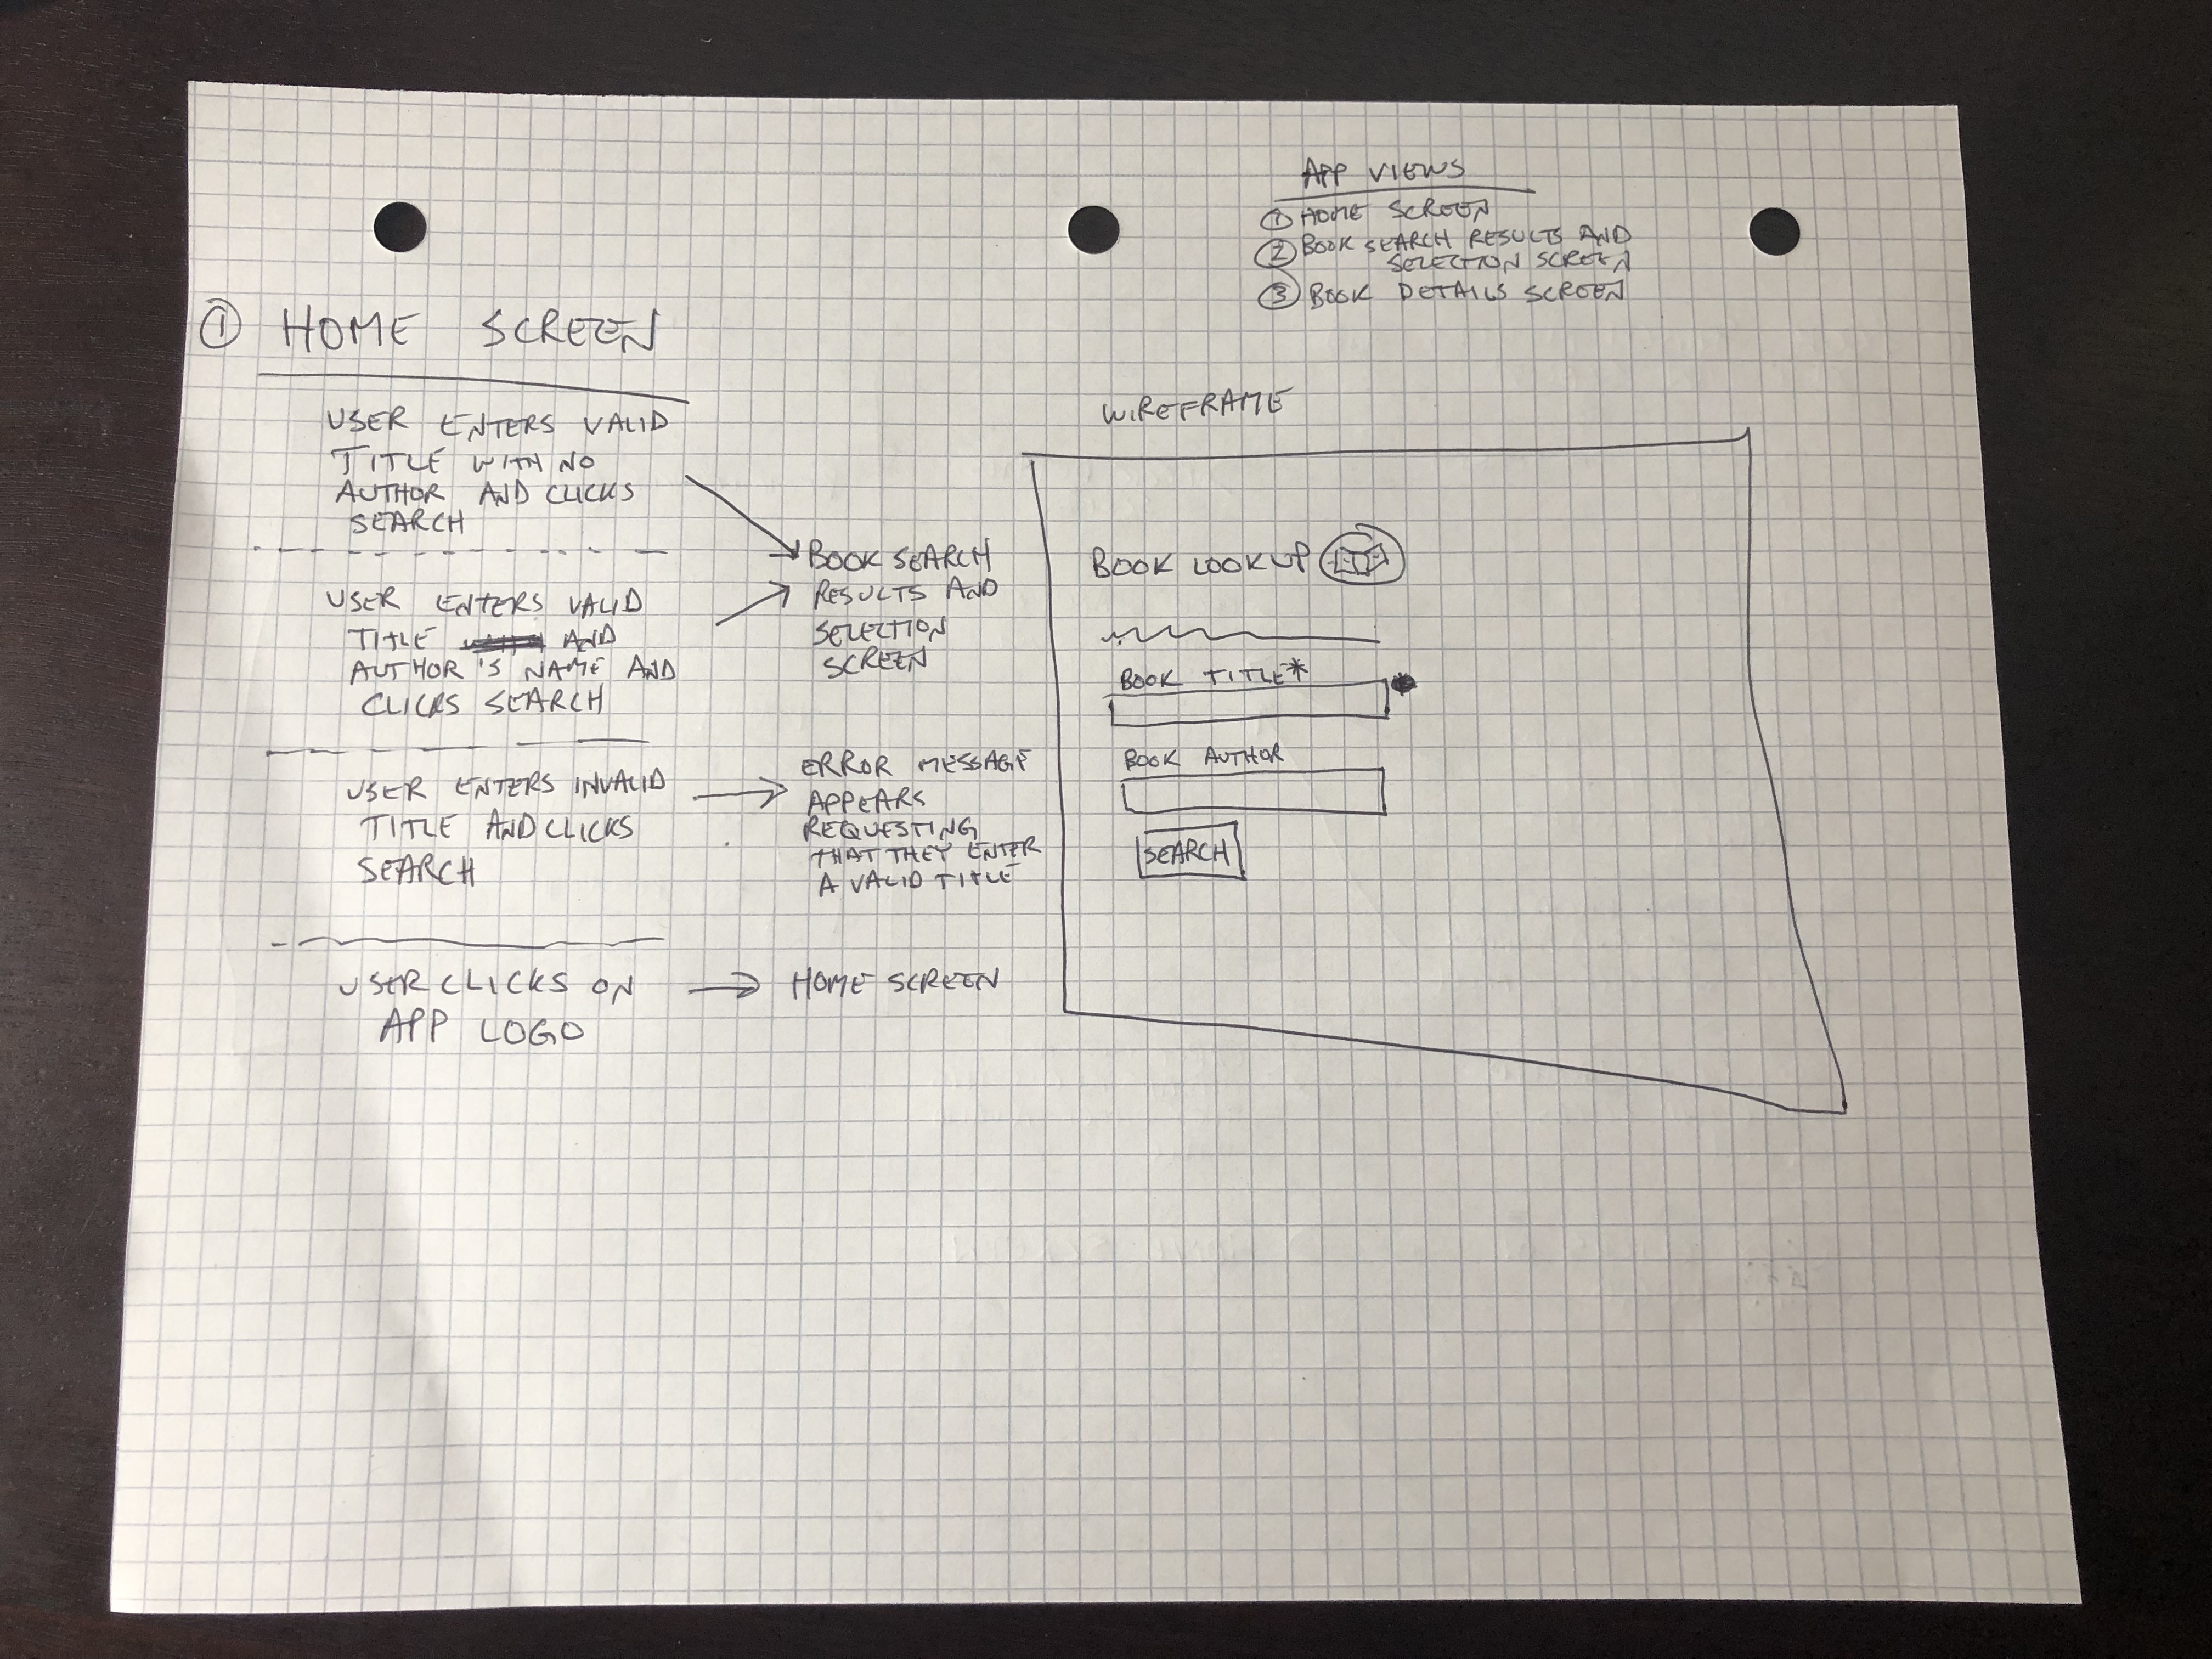 APP VIEWS
① HOME SCREEN
② BOOK SEARCH RESULTS AND
SELECTION SCREEN
③ BOOK DETAILS SCREEN
① HOME SCREEN
USER ENTERS VALID
TITLE WITH NO
AUTHOR AND CLICKS
SEARCH
USER ENTERS VALID
TITLE AND
AUTHOR'S NAME AND
CLICKS SEARCH
BOOK SEARCH
RESULTS AND
SELECTION
SCREEN
USER ENTERS INVALID
TITLE AND CLICKS
SEARCH
ERROR MESSAGE
APPEARS
REQUESTING
THAT THEY ENTER
A VALID TITLE
USER CLICKS ON
APP LOGO
HOME SCREEN
WIREFRAME
BOOK LOOKUP
BOOK TITLE*
BOOK AUTHOR
SEARCH